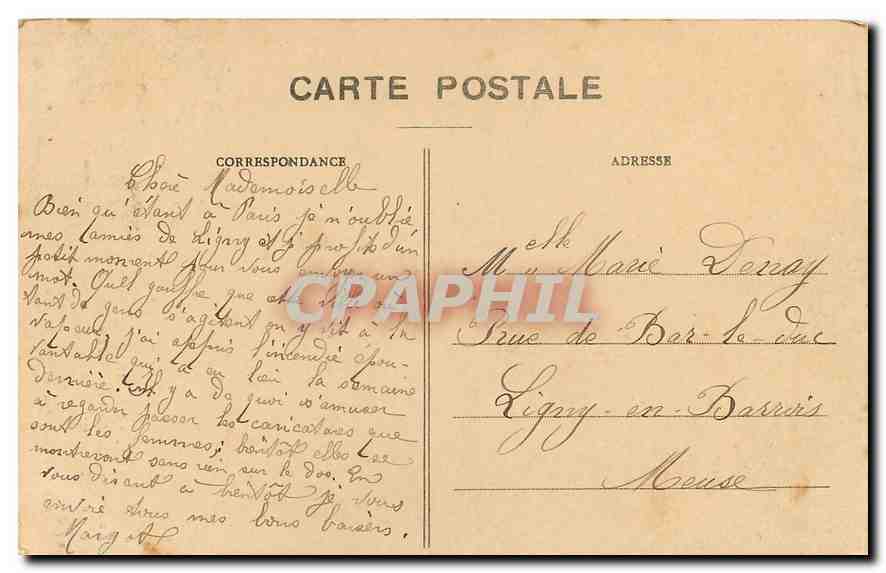 CARTE POSTALE
CORRESPONDANCE
Chère Mademoiselle
Bien qu'étant à Paris je n'oublie
mes amies de Ligny et j profite d'un
petit moment pour vous envoyer un
mot. Quel gouffre que cette ville où
tant de gens s'agitent on y vit à la
vapeur, j'ai appris l'incendie épou-
vantable qui a eu lieu la semaine
dernière. Il y a de quoi s'amuser
à regarder passer les caricatures que
sont les femmes; bientôt elles se
montreront sans rien sur le dos. En
vous disant à bientôt je vous
envoie tous mes bons baisers.
Margot
ADRESSE
Melle Marie Denay
Rue de Bar-le-duc
Ligny-en-Barrois
Meuse
CPAPHIL